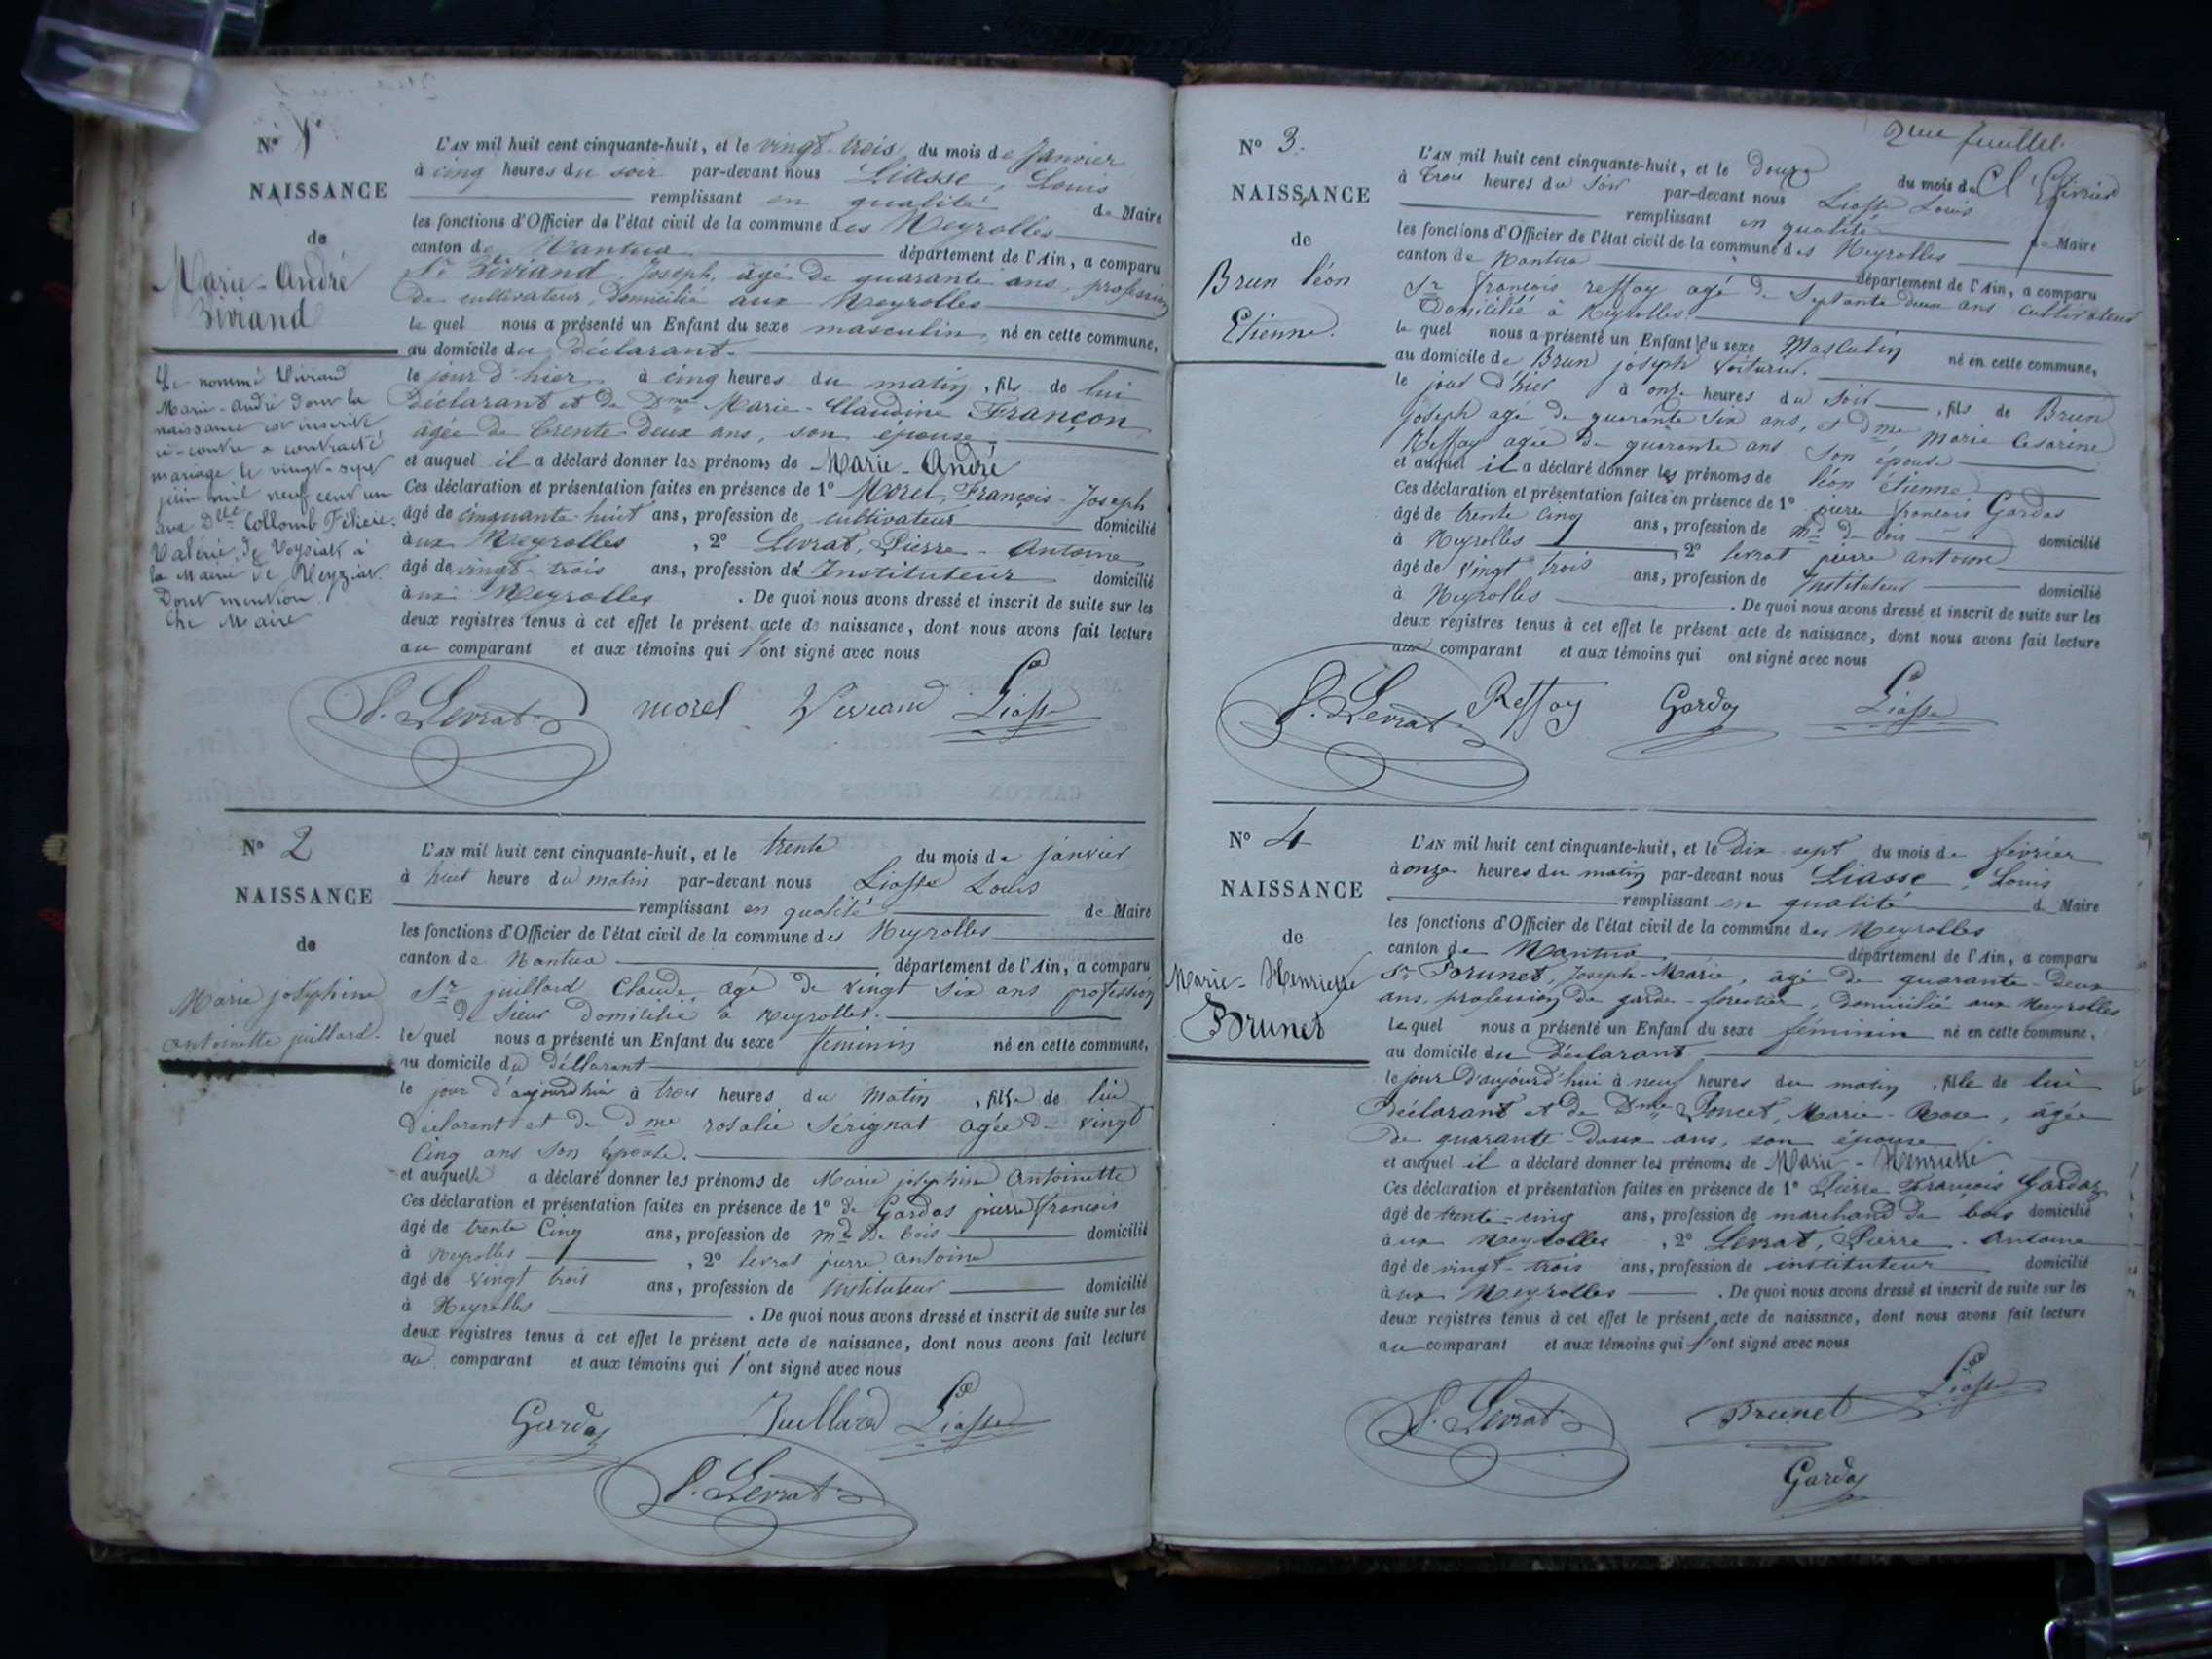 Nº 1
NAISSANCE
de
Marie-André
Viviand
Le nommé Viviand
Marie-André dont la
naissance est inscrite
ci-contre a contracté
mariage le vingt-sept
juin mil neuf cent un
avec Dlle Collomb Félicie
Valérie, de Veyziat à
la Mairie de Veyziat
Dont mention
Le Maire
L'AN mil huit cent cinquante-huit, et le vingt-trois du mois de Janvier
à cinq heures du soir par-devant nous Liasse, Louis
remplissant en qualité de Maire
les fonctions d'Officier de l'état civil de la commune des Neyrolles
canton de Nantua département de l'Ain, a comparu
Sr Viviand, Joseph, âgé de quarante ans, profession
de cultivateur, domicilié aux Neyrolles
le quel nous a présenté un Enfant du sexe masculin né en cette commune,
au domicile du déclarant.
le jour d'hier à cinq heures du matin, fils de lui
déclarant et de Dme Marie-Claudine Françon
âgée de trente-deux ans, son épouse
et auquel il a déclaré donner les prénoms de Marie-André
Ces déclaration et présentation faites en présence de 1º Morel, François-Joseph
âgé de cinquante-huit ans, profession de cultivateur domicilié
aux Neyrolles, 2º Levrat, Pierre-Antoine
âgé de vingt-trois ans, profession de Instituteur domicilié
aux Neyrolles. De quoi nous avons dressé et inscrit de suite sur les
deux registres tenus à cet effet le présent acte de naissance, dont nous avons fait lecture
au comparant et aux témoins qui l'ont signé avec nous
P. Levrat morel Viviand Liasse
Nº 2
NAISSANCE
de
Marie joséphine
antoinette juillard.
L'AN mil huit cent cinquante-huit, et le trente du mois de janvier
à huit heure du matin par-devant nous Liasse Louis
remplissant en qualité de Maire
les fonctions d'Officier de l'état civil de la commune des Neyrolles
canton de Nantua, département de l'Ain, a comparu
Sr juillard Claude agé de vingt six ans profession
de domicilié a Neyrolles.
le quel nous a présenté un Enfant du sexe féminin né en cette commune,
au domicile du déclarant
le jour d'aujourd'hui à trois heures du matin, fille de lui
déclarant et de dme rosalie Sérignat agée de vingt
cinq ans son épouse.
et auquelle a déclaré donner les prénoms de Marie joséphine Antoinette
Ces déclaration et présentation faites en présence de 1º de Gardas pierre françois
âgé de trente cinq ans, profession de md de bois domicilié
à Neyrolles, 2º levrat pierre antoine
âgé de vingt trois ans, profession de instituteur domicilié
à Neyrolles. De quoi nous avons dressé et inscrit de suite sur les
deux registres tenus à cet effet le présent acte de naissance, dont nous avons fait lecture
au comparant et aux témoins qui l'ont signé avec nous
Gardas Juillard Liasse
P. Levrat
2me feuillet
Nº 3.
NAISSANCE
de
Brun léon
Etienne.
L'AN mil huit cent cinquante-huit, et le douze du mois de février
à trois heures du soir par-devant nous Liasse Louis
remplissant en qualité de Maire
les fonctions d'Officier de l'état civil de la commune des Neyrolles
canton de Nantua département de l'Ain, a comparu
Sr françois reffay agé de septante deux ans cultivateur
domicilié à Neyrolles
le quel nous a présenté un Enfant du sexe Masculin né en cette commune,
au domicile de Brun joseph voiturier.
le jour d'hier à onze heures du soir, fils de Brun
joseph agé de quarante six ans, et dme marie Césarine
Reffay agée de quarante ans son épouse
et auquel il a déclaré donner les prénoms de léon étienne
Ces déclaration et présentation faites en présence de 1º pierre françois Gardas
âgé de trente cinq ans, profession de md de bois domicilié
à Neyrolles, 2º levrat pierre antoine
âgé de vingt trois ans, profession de Instituteur domicilié
à Neyrolles. De quoi nous avons dressé et inscrit de suite sur les
deux registres tenus à cet effet le présent acte de naissance, dont nous avons fait lecture
aux comparant et aux témoins qui ont signé avec nous
P. Levrat Reffay Gardas Liasse
Nº 4
NAISSANCE
de
Marie-Henriette
Brunet
L'AN mil huit cent cinquante-huit, et le dix-sept du mois de février
à onze heures du matin par-devant nous Liasse, Louis
remplissant en qualité d Maire
les fonctions d'Officier de l'état civil de la commune des Neyrolles
canton de Nantua département de l'Ain, a comparu
Sr Brunet, Joseph-Marie, âgé de quarante-deux
ans, profession de garde-forestier, domicilié aux Neyrolles
le quel nous a présenté un Enfant du sexe féminin né en cette commune,
au domicile du déclarant
le jour d'aujourd'hui à neuf heures du matin, fille de lui
déclarant et de Dme Poncet, Marie-Rose, âgée
de quarante-deux ans, son épouse
et auquel il a déclaré donner les prénoms de Marie-Henriette
Ces déclaration et présentation faites en présence de 1º Pierre François Gardas
âgé de trente-cinq ans, profession de marchand de bois domicilié
aux Neyrolles, 2º Levrat, Pierre-Antoine
âgé de vingt-trois ans, profession de instituteur domicilié
aux Neyrolles. De quoi nous avons dressé et inscrit de suite sur les
deux registres tenus à cet effet le présent acte de naissance, dont nous avons fait lecture
au comparant et aux témoins qui l'ont signé avec nous
P. Levrat Brunet Liasse
Gardas